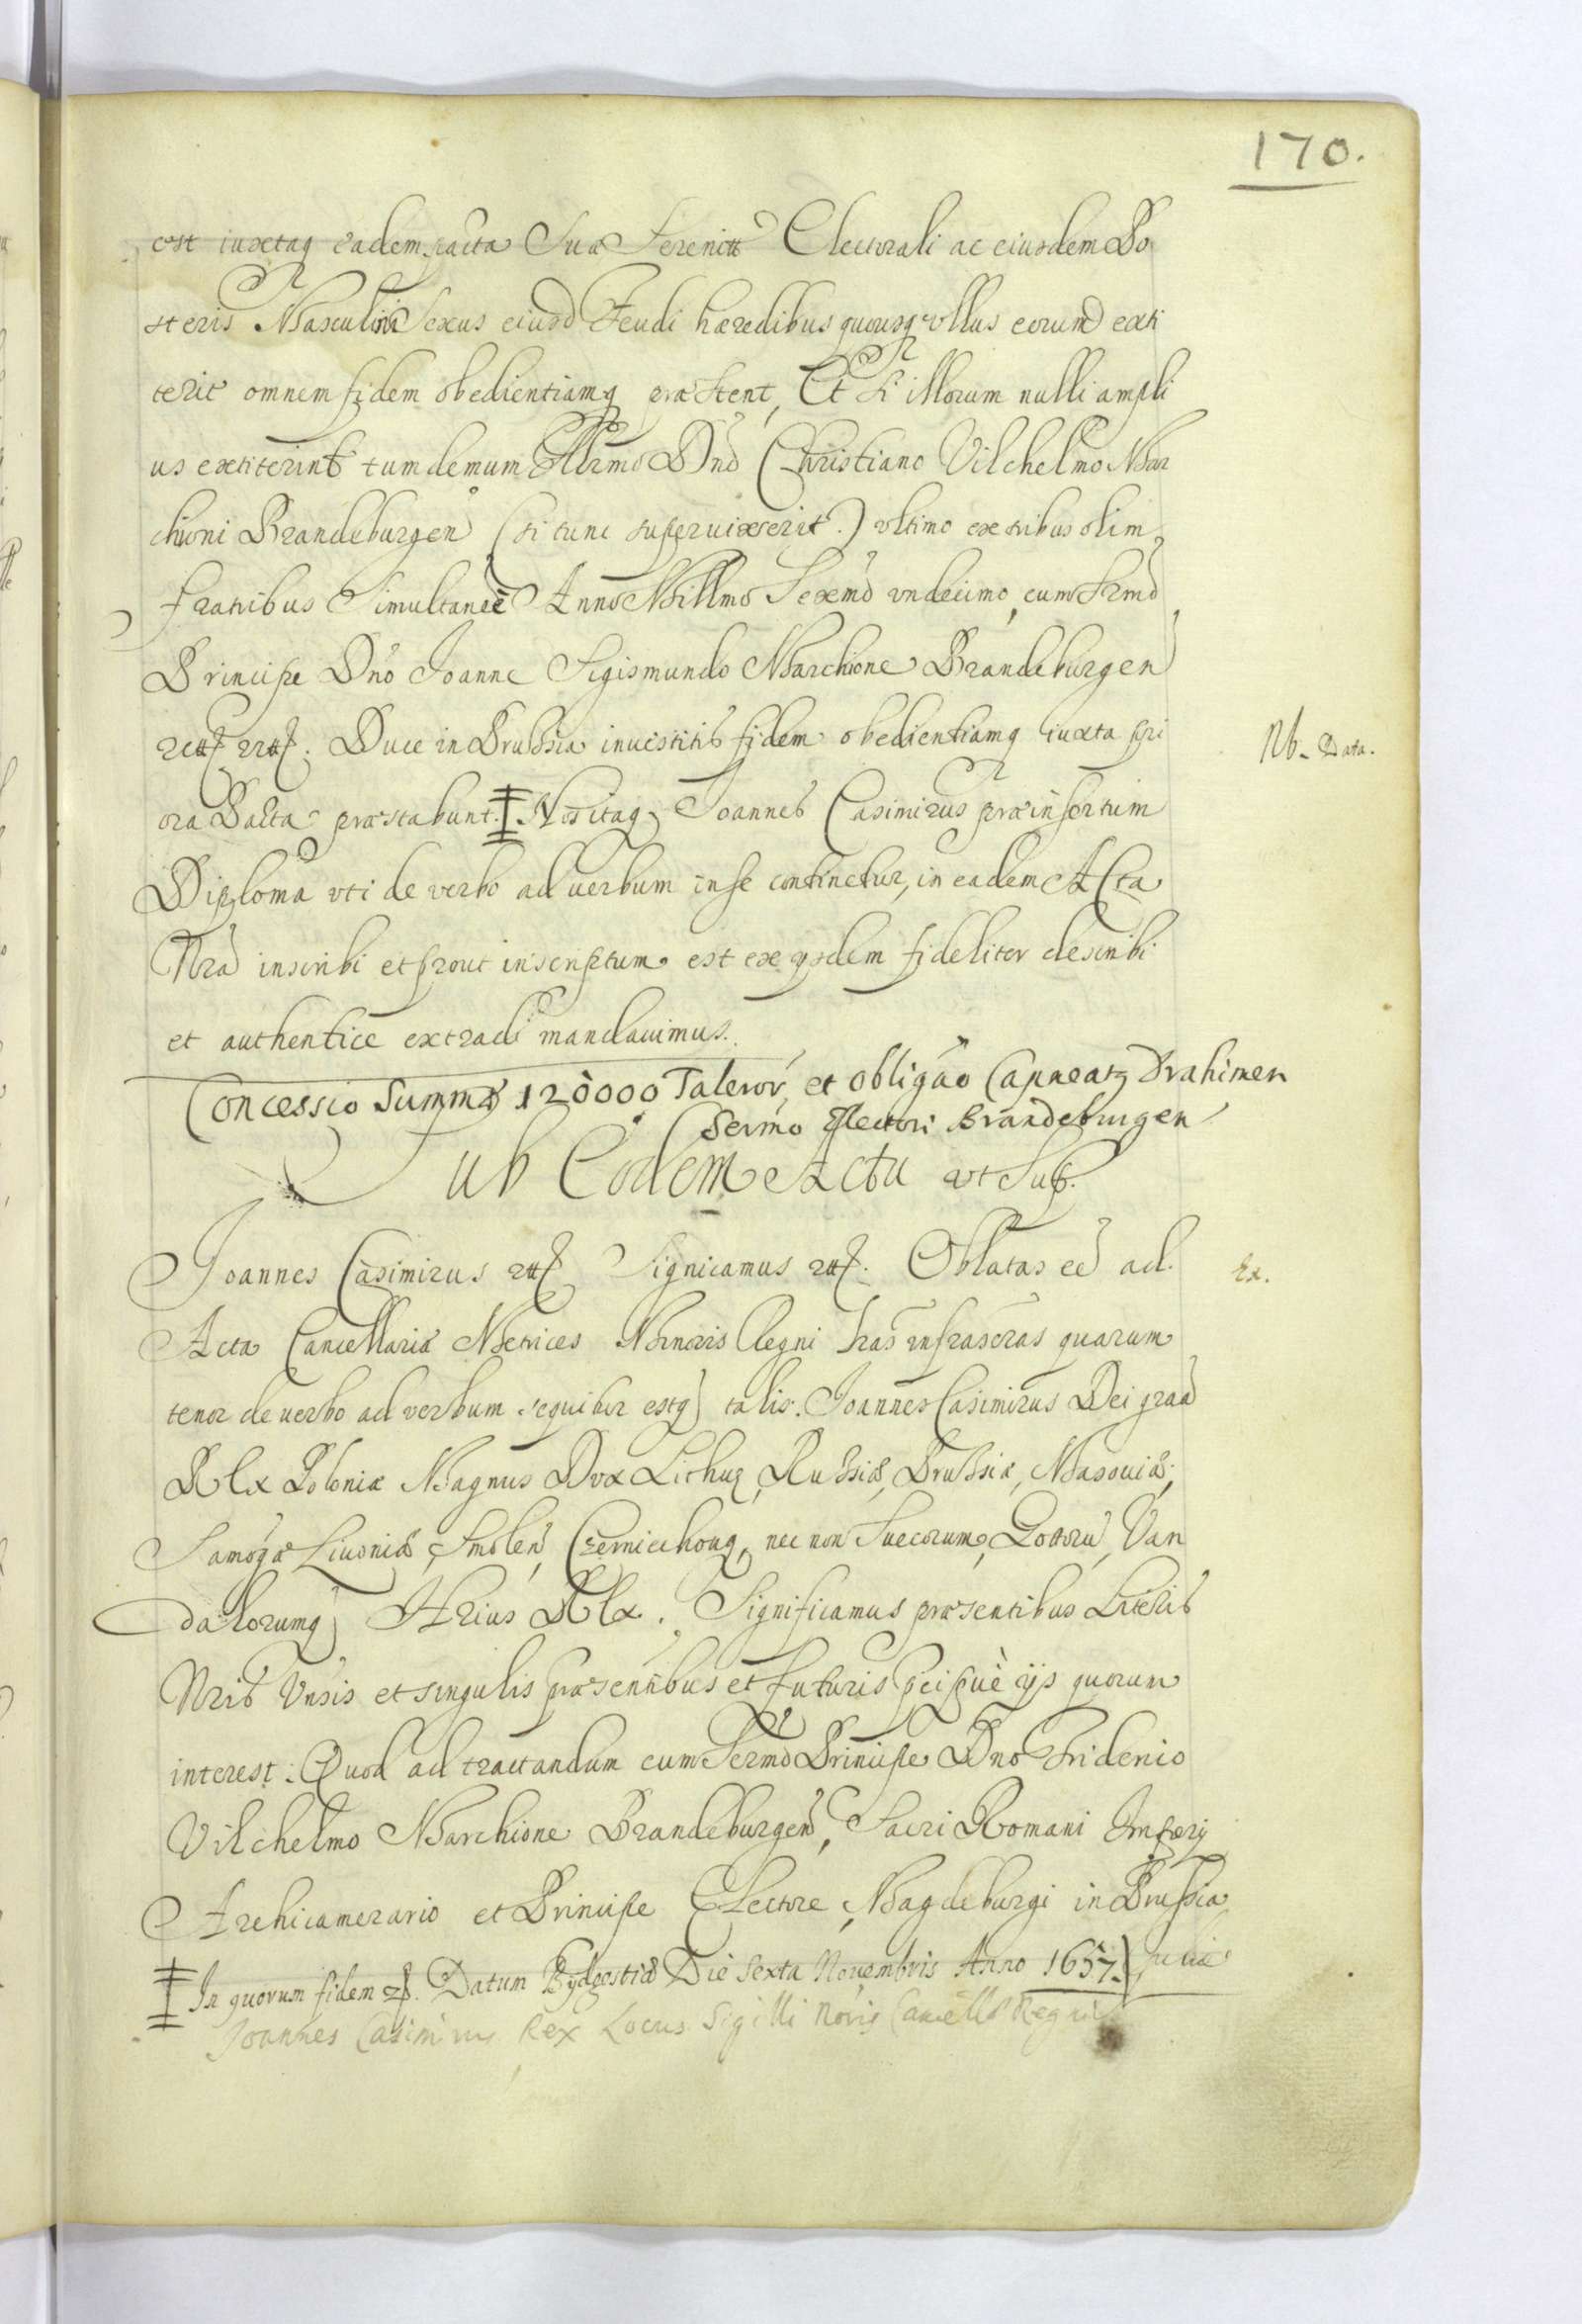 170.
est iuxtaq eadem pacta Suæ Serenitt Electorali ac eiusdem Po
steris Masculini Sexus eiusd Feudi hæredibus quousq vllus eorund exti
terit omnem fidem obedientiamq præstent, Et si illorum nulli ampli
us extiterint tum demum Illrmo Dno Christiano Vilchelmo Mar
chioni Brandeburgen (si tunc superuixerit.) vltimo ex tribus olim
fratribus Simultaneè Anno Millmo Sexmo vndecimo, cum Srmo
Principe Dno Joanne Sigismundo Marchione Brandeburgen
rett rett. Duce in Prussia inuestitis fidem obedientiamq iuxta pri
Nb. Data.
ora Pacta præstabunt. ‡ Nos itaq Joannes Casimirus præinsertum
Diploma vti de verbo ad uerbum in se continetur, in eadem Acta
Nra inscribi et prout inscriptum est ex ijsdem fideliter describi
et authentice extradi mandauimus.
Concessio Summæ 120000 Taleror, et obligao Capneatq Drahimen
Sermo Electori Brandeburgen
Sub Eodem Actu vt Sup.
Joannes Casimirus rtt Signicamus rtt. Oblatas eē ad
Ex.
Acta Cancellariæ Metrices Minoris Regni Lras infrascras quarum
tenor de uerbo ad verbum sequitur estq talis. Joannes Casimirus Dei graa
Rex Poloniæ Magnus Dux Lithuę, Russiæ, Prussiæ, Masouiæ,
Samogæ Liuoniæ, Smolen, Czerniechouq, nec non Suecorum, Gottoru, Van
dalorumq Hrius Rex. Significamus præsentibus Literis
Nris Vnsis et singulis præsentibus et futuris pcipuè ijs quorum
interest. Quod ad tractandum cum Sermo Principe Dno Friderico
Vilchelmo Marchione Brandeburgen, Sacri Romani Imperij
Archicamerario et Principe Electore, Magdeburgi in Prussia,
Juliæ
‡ In quorum fidem rtt. Datum Bydgostiæ Die Sexta Nouembris Anno 1657.
Joannes Casimirus Rex Locus Sigilli Noris Cancellæ Regni